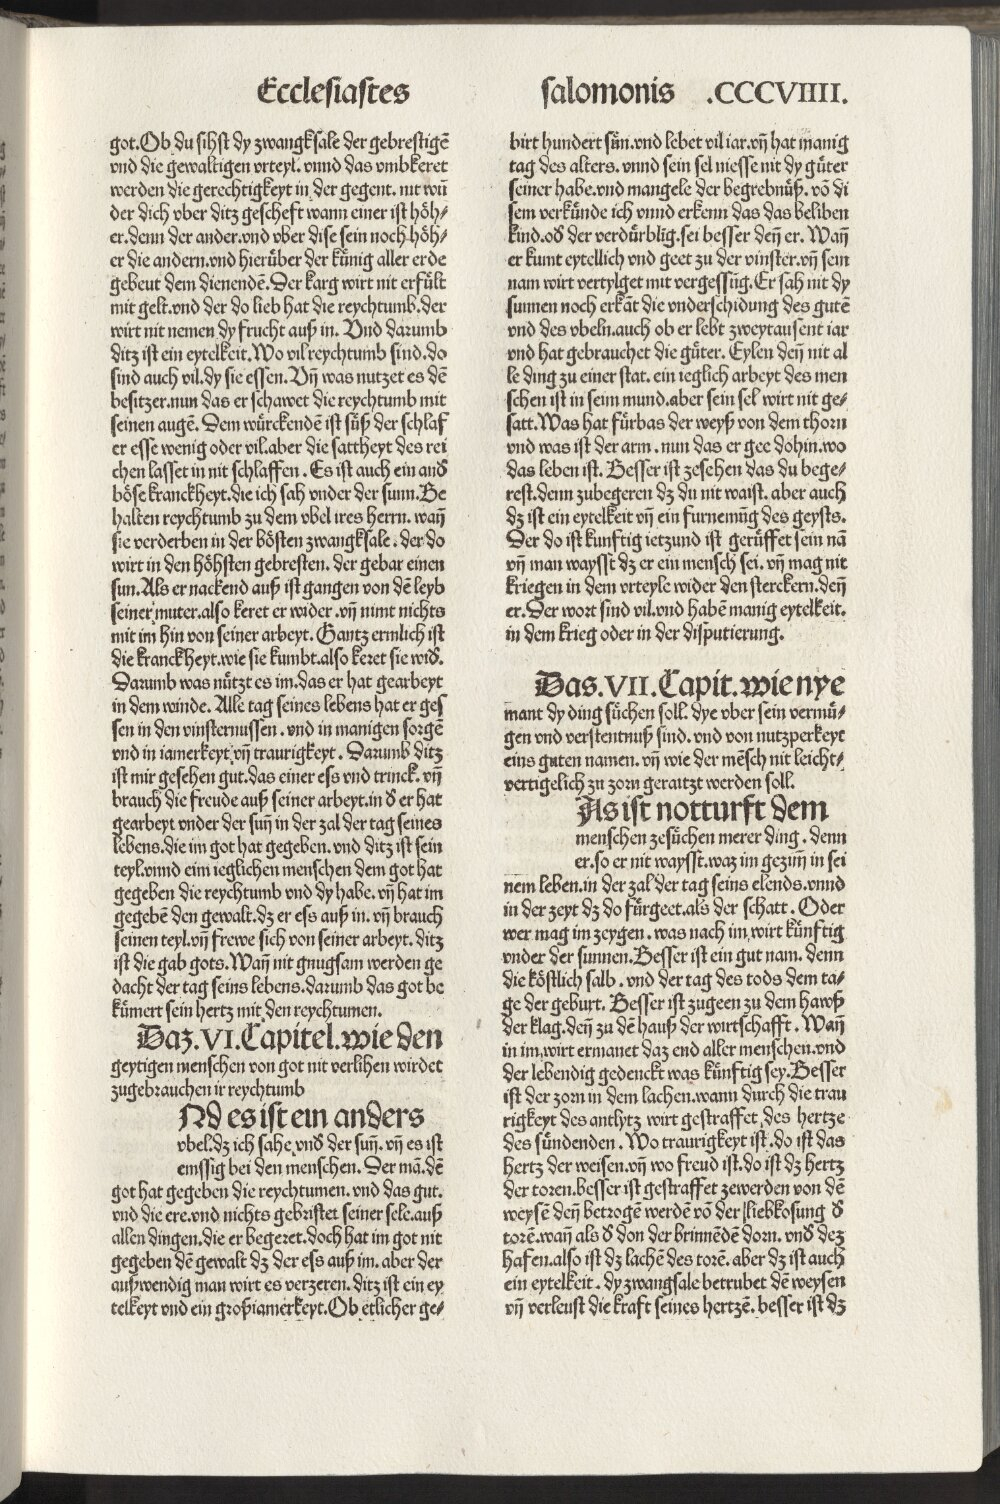 Ecclesiastes
salomonis .CCCVIIII.
got.Ob du sihst dy zwangksale der gebrestigē
vnd die gewaltigen vrteyl. vnnd das vmbkeret
werden die gerechtigkeyt in der gegent. nit wū
der dich vber ditz gescheft wann einer ist höh⸗
er.denn der ander.vnd vber dise sein noch höh⸗
er die andern.vnd hierüber der künig aller erde
gebeut dem dienendē.Der karg wirt nit erfült
mit gelt.vnd der do lieb hat die reychtumb.der
wirt nit nemen dy frucht auß in. Vnd darumb
ditz ist ein eytelkeit.Wo vil reychtumb sind.do
sind auch vil.dy sie essen.Vn̄ was nutzet es dē
besitzer.nun das er schawet die reychtumb mit
seinen augē. Dem würckendē ist süß der schlaf
er esse wenig oder vil.aber die sattheyt des rei
chen lasset in nit schlaffen. Es ist auch ein and̄
böse kranckheyt.die ich sah vnder der sunn.Be
halten reychtumb zu dem vbel ires herrn. wan̄
sie verderben in der bösten zwangksale. der do
wirt in den höhsten gebresten. der gebar einen
sun.Als er nackend auß ist gangen von dē leyb
seiner muter.also keret er wider.vn̄ nimt nichts
mit im hin von seiner arbeyt. Gantz ermlich ist
die kranckheyt.wie sie kumbt.also keret sie wid̄.
Darumb was nützt es im.das er hat gearbeyt
in dem winde. Alle tag seines lebens hat er ges
sen in den vinsternussen. vnd in manigen sorgē
vnd in iamerkeyt vn̄ traurigkeyt. Darumb ditz
ist mir gesehen gut.das einer ess vnd trinck. vn̄
brauch die freude auß seiner arbeyt.in d̄ er hat
gearbeyt vnder der sun̄ in der zal der tag seines
lebens.die im got hat gegeben. vnd ditz ist sein
teyl.vnnd eim ieglichen menschen dem got hat
gegeben die reychtumb vnd dy habe. vn̄ hat im
gegebē den gewalt.dz er ess auß in. vn̄ brauch
seinen teyl.vn̄ frewe sich von seiner arbeyt. ditz
ist die gab gots.Wan̄ nit gnugsam werden ge
dacht der tag seins lebens.darumb das got be
kümert sein hertz mit den reychtumen.
Daz.VI.Capitel.wie den
geytigen menschen von got nit verlihen wirdet
zugebrauchen ir reychtumb
Nd es ist ein anders
vbel.dz ich sahe vnd̄ der sun̄. vn̄ es ist
emssig bei den menschen. Der mā.dē
got hat gegeben die reychtumen. vnd das gut.
vnd die ere.vnd nichts gebristet seiner sele.auß
allen dingen.die er begeret.doch hat im got nit
gegeben dē gewalt dz der ess auß im. aber der
außwendig man wirt es verzeren. ditz ist ein ey
telkeyt vnd ein groß iamerkeyt.Ob etlicher ge⸗
birt hundert sün.vnd lebet vil iar.vn̄ hat manig
tag des alters. vnnd sein sel niesse nit dy güter
seiner habe.vnd mangele der begrebnüß. vō di
sem verkünde ich vnnd erkenn das das beliben
kind.od̄ der verdürblig.sei besser den̄ er. Wan̄
er kumt eytellich vnd geet zu der vinster.vn̄ sein
nam wirt vertylget mit vergessūg.Er sah nit dy
sunnen noch erkāt die vnderschidung des gutē
vnd des vbeln.auch ob er lebt zweytausent iar
vnd hat gebrauchet die güter. Eylen den̄ nit al
le ding zu einer stat. ein ieglich arbeyt des men
schen ist in seim mund.aber sein sel wirt nit ge⸗
satt.Was hat fürbas der weyß von dem thorn
vnd was ist der arm. nun das er gee dohin.wo
das leben ist. Besser ist zesehen das du bege⸗
rest.denn zubegeren dz du nit waist. aber auch
dz ist ein eytelkeit vn̄ ein furnemūg des geysts.
Der do ist kunftig ietzund ist gerüffet sein nā
vn̄ man waysst dz er ein mensch sei. vn̄ mag nit
kriegen in dem vrteyle wider den sterckern.den̄
er.Der wort sind vil.vnd habē manig eytelkeit.
in dem krieg oder in der disputierung.
Das.VII.Capit.wie nye
mant dy ding süchen soll. dye vber sein vermü⸗
gen vnd verstentnuß sind. vnd von nutzperkeyt
eins guten namen. vn̄ wie der mēsch nit leicht⸗
vertigelich zu zorn geraitzt werden soll.
As ist notturft dem
menschen zesüchen merer ding. denn
er.so er nit waysst.waz im gezim̄ in sei
nem leben.in der zal der tag seins elends.vnnd
in der zeyt dz do fürgeet.als der schatt. Oder
wer mag im zeygen. was nach im wirt künftig
vnder der sunnen.Besser ist ein gut nam. denn
die köstlich salb. vnd der tag des tods dem ta⸗
ge der geburt. Besser ist zugeen zu dem hawß
der klag.den̄ zu dē hauß der wirtschafft. Wan̄
in im wirt ermanet daz end aller menschen.vnd
der lebendig gedenckt was künftig sey.Besser
ist der zorn in dem lachen.wann durch die trau
rigkeyt des anthlytz wirt gestraffet des hertze
des sündenden. Wo traurigkeyt ist.do ist das
hertz der weisen.vn̄ wo freud ist.do ist dz hertz
der toren.besser ist gestraffet zewerden von dē
weysē den̄ betrogē werdē vō der liebkosung d̄
torē.wan̄ als d̄ don der brinnēdē dorn. vnd̄ dez
hafen.also ist dz lachē des torē. aber dz ist auch
ein eytelkeit. dy zwangsale betrubet dē weysen
vn̄ verleust die kraft seines hertzē. besser ist dz